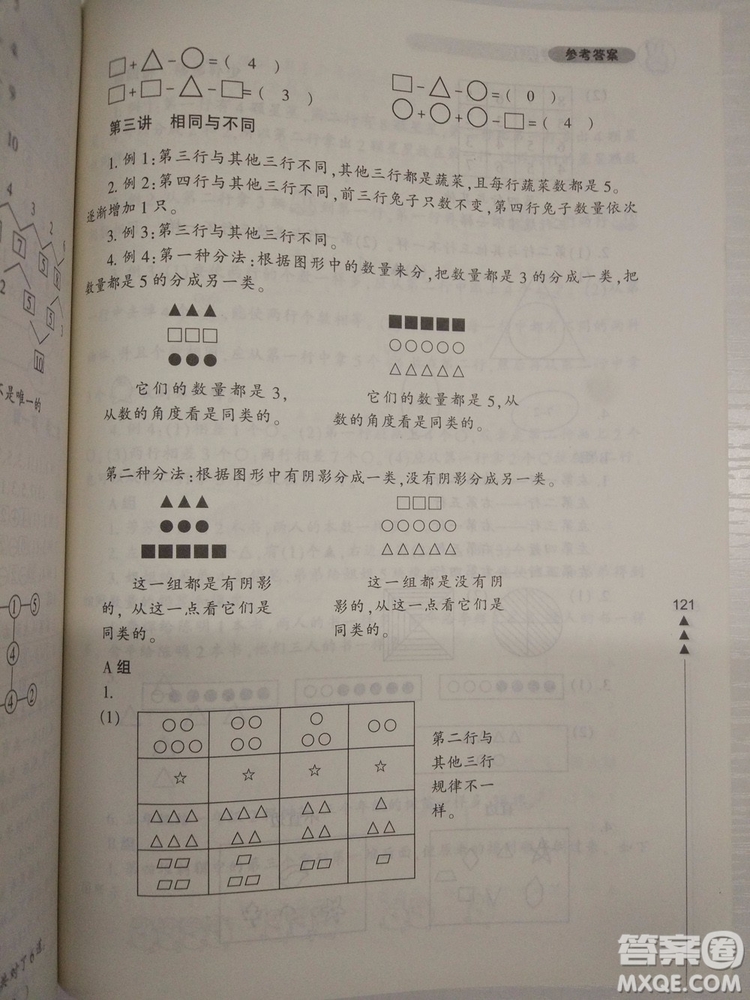 参考答案
□+△-○=( 4 )
□-△-○=( 0 )
□+□-△-□=( 3 )
○+○+○-□=( 4 )
第三讲 相同与不同
1. 例1:第三行与其他三行不同,其他三行都是蔬菜,且每行蔬菜数都是5。
2. 例2:第四行与其他三行不同,前三行兔子只数不变,第四行兔子数量依次
逐渐增加1只。
3. 例3:第三行与其他三行不同。
4. 例4:第一种分法:根据图形中的数量来分,把数量都是3的分成一类,把
数量都是5的分成另一类。
它们的数量都是3,
从数的角度看是同类的。
它们的数量都是5,从
数的角度看是同类的。
第二种分法:根据图形中有阴影分成一类,没有阴影分成另一类。
这一组都是有阴影
的,从这一点看它们是
同类的。
这一组都是没有阴
影的,从这一点看它们是
同类的。
121
A组
1.
(1)
第二行与
其他三行
规律不一
样。
答案圈
MXQE.COM